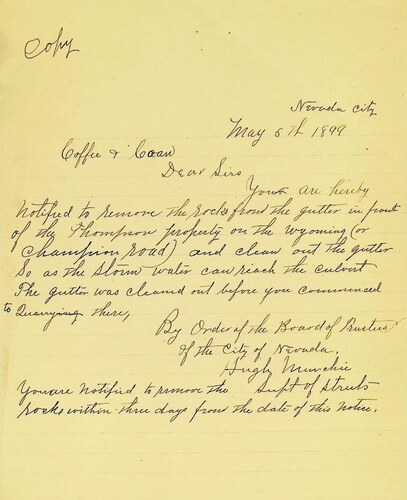 Copy
Nevada City
May 5th 1899
Coffee & Coan
Dear Sirs
You are hereby
Notified to remove the rocks from the gutter in front
of the Thompson property on the Wyoming (or
Champion road) and clean out the gutter
So as the storm water can reach the culvert
The gutter was cleaned out before you commenced
to Quarrying there,
By Order of the Board of Trustees
of the City of Nevada.
Hugh Munchie
Supt of Streets
You are Notified to remove the
rocks within three days from the date of this notice.